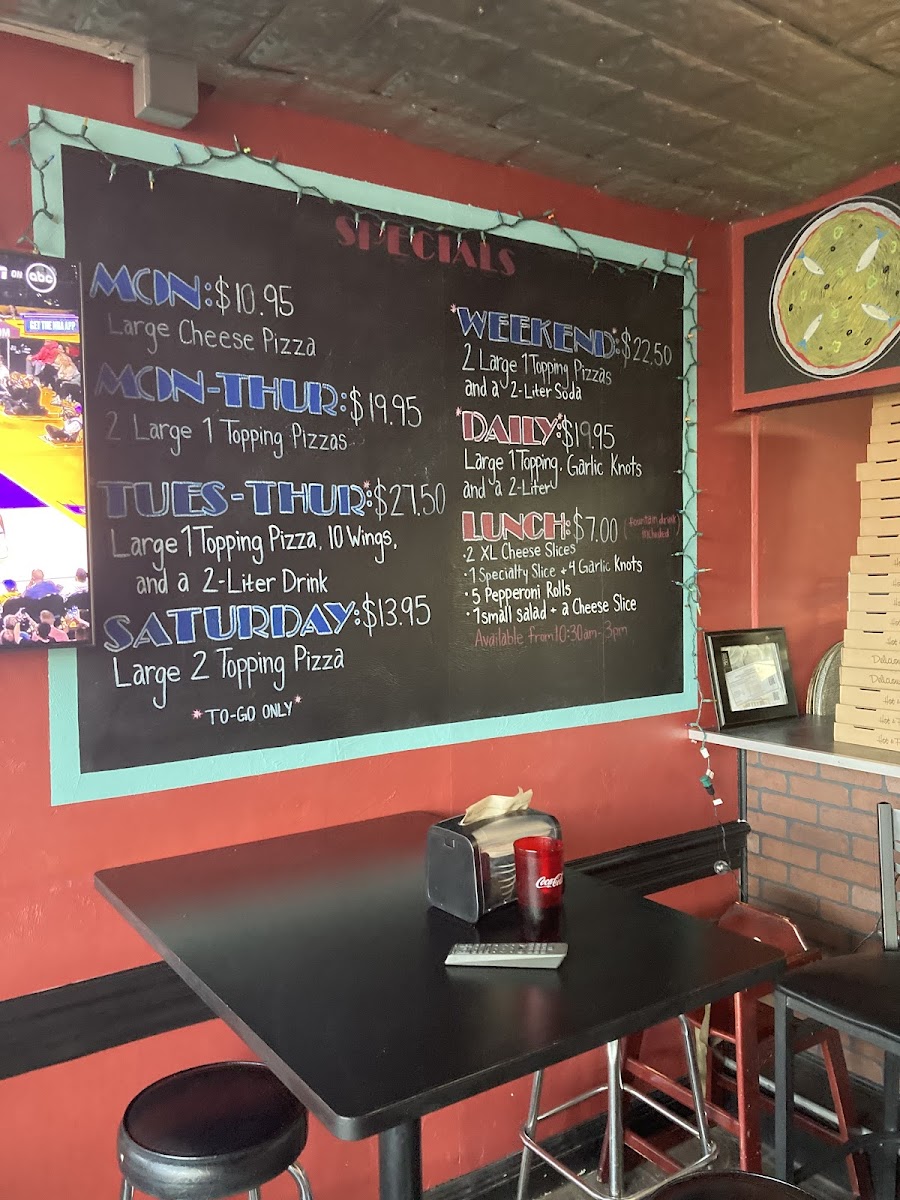 ON abc
GET THE NBA APP
SPECIALS
MON: $10.95
Large Cheese Pizza
MON-THUR: $19.95
2 Large 1 Topping Pizzas
TUES-THUR:* $27.50
Large 1 Topping Pizza, 10 Wings,
and a 2-Liter Drink
SATURDAY: $13.95
Large 2 Topping Pizza
*TO-GO ONLY*
*WEEKEND*: $22.50
2 Large 1 Topping Pizzas
and a 2-Liter Soda
*DAILY*: $19.95
Large 1 Topping, Garlic Knots
and a 2-Liter
LUNCH: $7.00 (fountain drink
included)
•2 XL Cheese Slices
•1 Specialty Slice + 4 Garlic Knots
•5 Pepperoni Rolls
•1 small salad + a Cheese Slice
Available from 10:30am-3pm
Coca-Cola